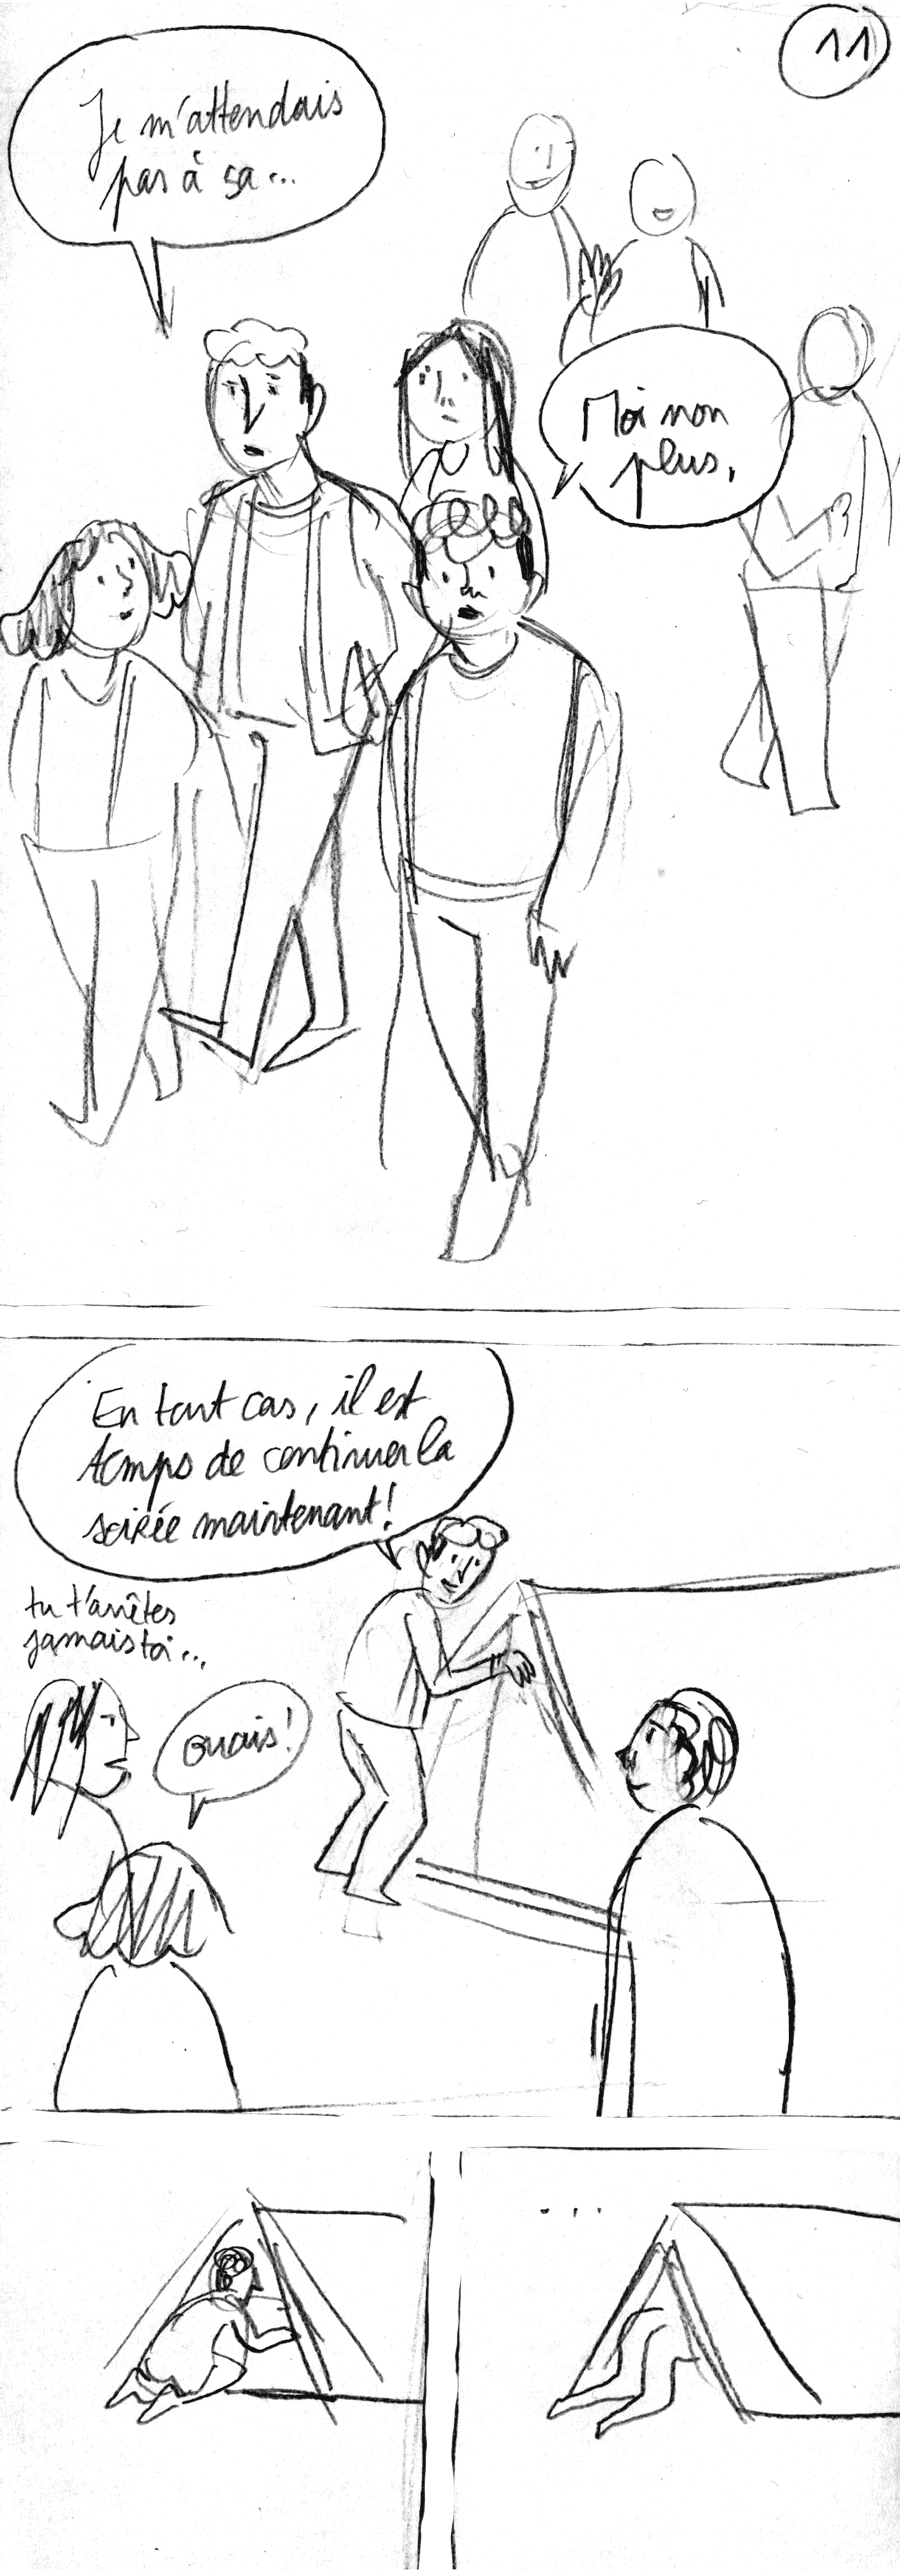 11
Je m'attendais
pas à sa...
Moi non
plus.
En tout cas, il est
temps de continuer la
soirée maintenant!
tu t'arrêtes
jamais toi...
ouais!
....